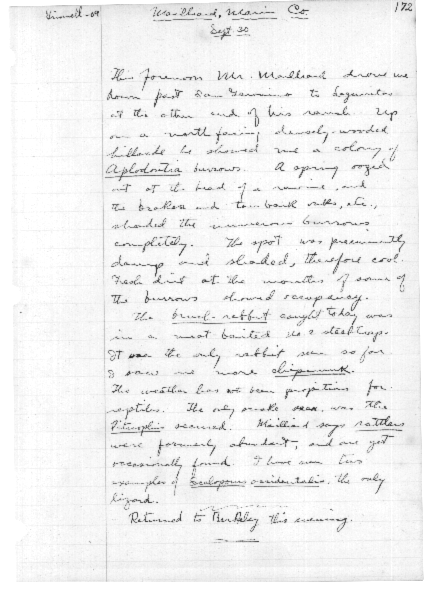 Grinnell-09
Mailliard, Marin Co
172
Sept 30
This forenoon Mr. Mailliard drove me
down past San Geronimo to Lagunitas
at the other end of his ranch. Up
on a north facing, densely-wooded
hillside he showed me a colony of
Aplodontia burrows. A spring oozed
out at the head of a ravine, and
the brakes and tan bark oaks, etc.,
shaded the numerous burrows
completely. The spot was preeminently
damp and shaded, therefore cool.
Fresh dirt at the mouths of some of
the burrows showed occupancy.
The brush-rabbit caught today was
in a meat baited no. 2 steel trap.
It was the only rabbit seen so far.
I saw no more chipmunk.
The weather has not been propitious for
reptiles. The only snake seen, was the
Pituophis secured. Mailliard says rattlers
were formerly abundant, and are yet
occasionally found. I have seen two
examples of Sceloporus occidentalis, the only
lizard.
Returned to Berkeley this evening.